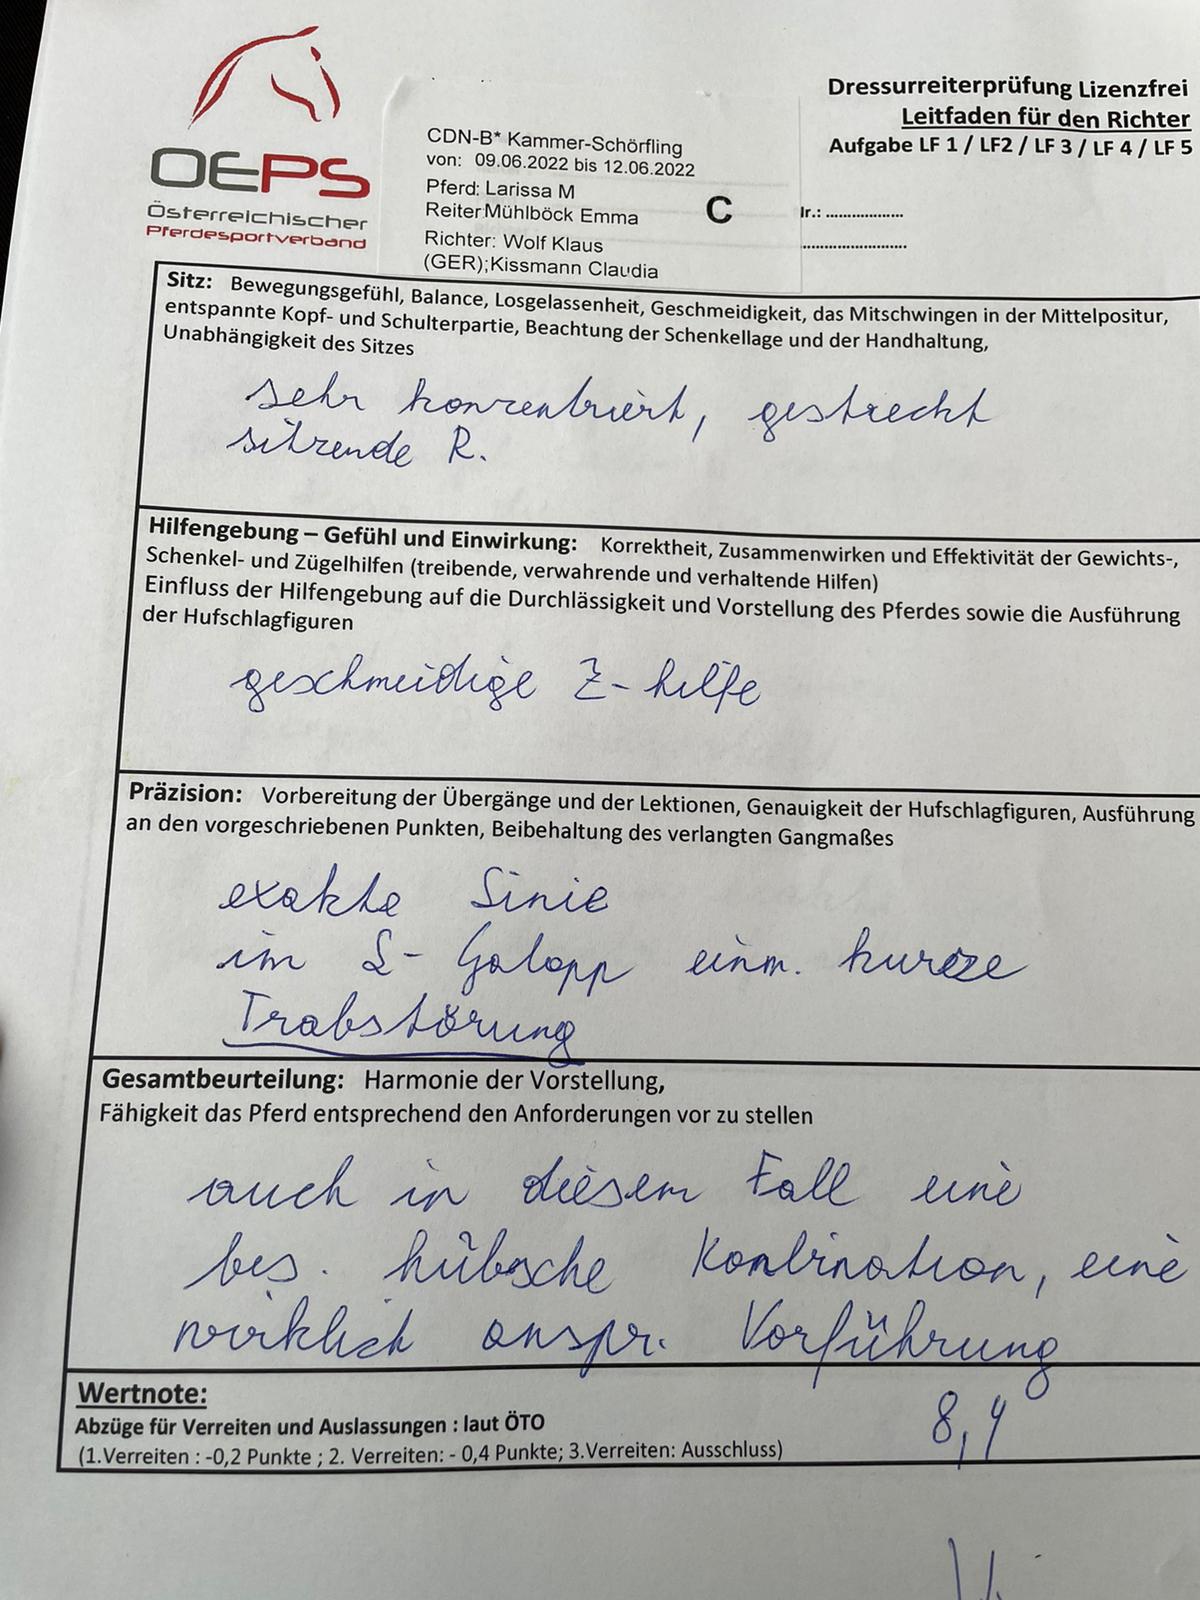 OEPS
Österreichischer
Pferdesportverband
CDN-B* Kammer-Schörfling
von: 09.06.2022 bis 12.06.2022
Pferd: Larissa M
Reiter:Mühlböck Emma
C
Richter: Wolf Klaus
(GER);Kissmann Claudia
Dressurreiterprüfung Lizenzfrei
Leitfaden für den Richter
Aufgabe LF 1 / LF2 / LF 3 / LF 4 / LF 5
Ir.: ...................
..........................
Sitz: Bewegungsgefühl, Balance, Losgelassenheit, Geschmeidigkeit, das Mitschwingen in der Mittelpositur,
entspannte Kopf- und Schulterpartie, Beachtung der Schenkellage und der Handhaltung,
Unabhängigkeit des Sitzes
sehr konzentriert, gestreckt
sitzende R.
Hilfengebung – Gefühl und Einwirkung: Korrektheit, Zusammenwirken und Effektivität der Gewichts-,
Schenkel- und Zügelhilfen (treibende, verwahrende und verhaltende Hilfen)
Einfluss der Hilfengebung auf die Durchlässigkeit und Vorstellung des Pferdes sowie die Ausführung
der Hufschlagfiguren
geschmeidige Z-hilfe
Präzision: Vorbereitung der Übergänge und der Lektionen, Genauigkeit der Hufschlagfiguren, Ausführung
an den vorgeschriebenen Punkten, Beibehaltung des verlangten Gangmaßes
exakte Linie
im L-Galopp einm. kurze
Trabstörung
Gesamtbeurteilung: Harmonie der Vorstellung,
Fähigkeit das Pferd entsprechend den Anforderungen vor zu stellen
auch in diesem Fall eine
bes. hübsche Kombination, eine
wirklich anspr. Vorführung
Wertnote:
Abzüge für Verreiten und Auslassungen : laut ÖTO
(1.Verreiten : -0,2 Punkte ; 2. Verreiten: - 0,4 Punkte; 3.Verreiten: Ausschluss)
8,4